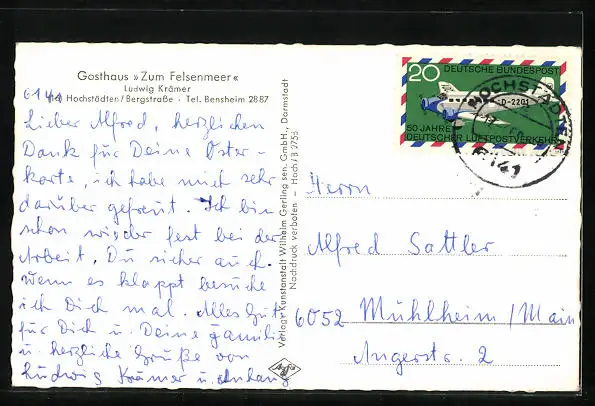 Gosthaus »Zum Felsenmeer«
Ludwig Krämer
6141 Hochstädten/Bergstraße - Tel. Bensheim 2887
Lieber Alfred, herzlichen
Dank für Deine Oster-
karte, ich habe mich sehr
darüber gefreut. Ich bin
schon wieder fest bei der
Arbeit. Du sicher auch.
wenn es klappt besuche
ich Dich mal. Alles Gute
für Dich u. Deine Familie
u. herzliche Grüße von
Ludwig Krämer u. Anhang
Verlag: Kunstanstalt Wilhelm Gerling sen. GmbH., Darmstadt
Nachdruck verboten - Hoch/3
Agfa
20 DEUTSCHE BUNDESPOST
D-2201
50 JAHRE
DEUTSCHER LUFTPOSTVERKEHR
HOCHSTÄDTEN
6141
Herrn
Alfred Sattler
6052 Mühlheim/Main
Angerstr. 2